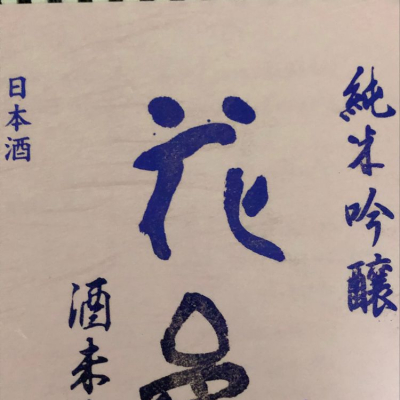 純米吟醸
花
酒未
日本酒